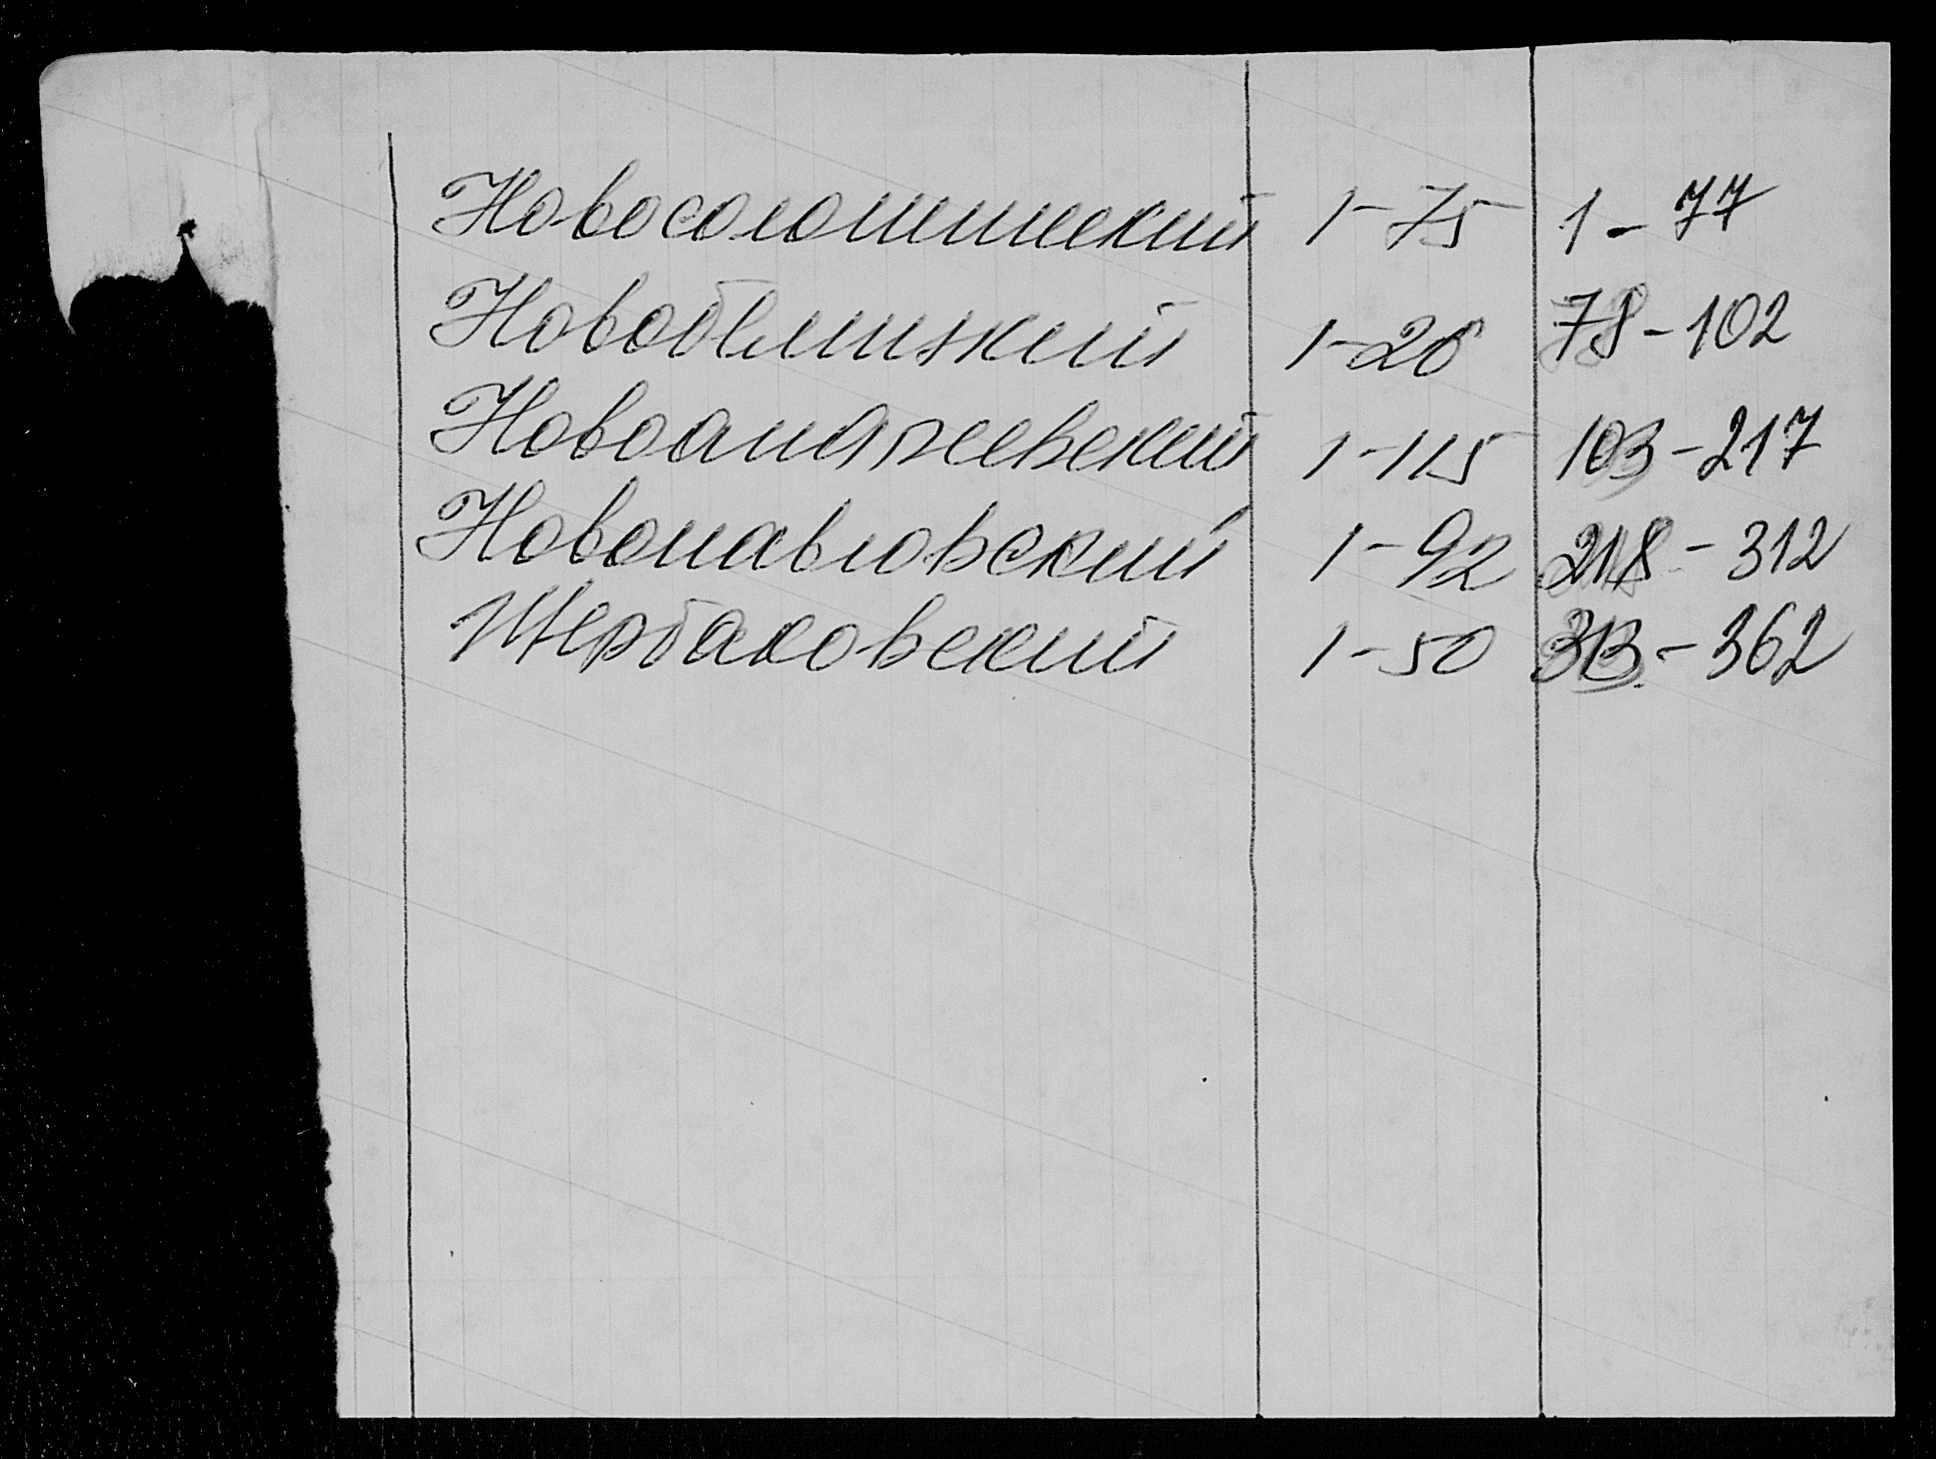 Новосолошинский 1-75 1-77
1-26 78-102
Новоандреевский 1-115 103-217
Новопавловский 1-92 218-312
Щербаковский 1-50 313-362